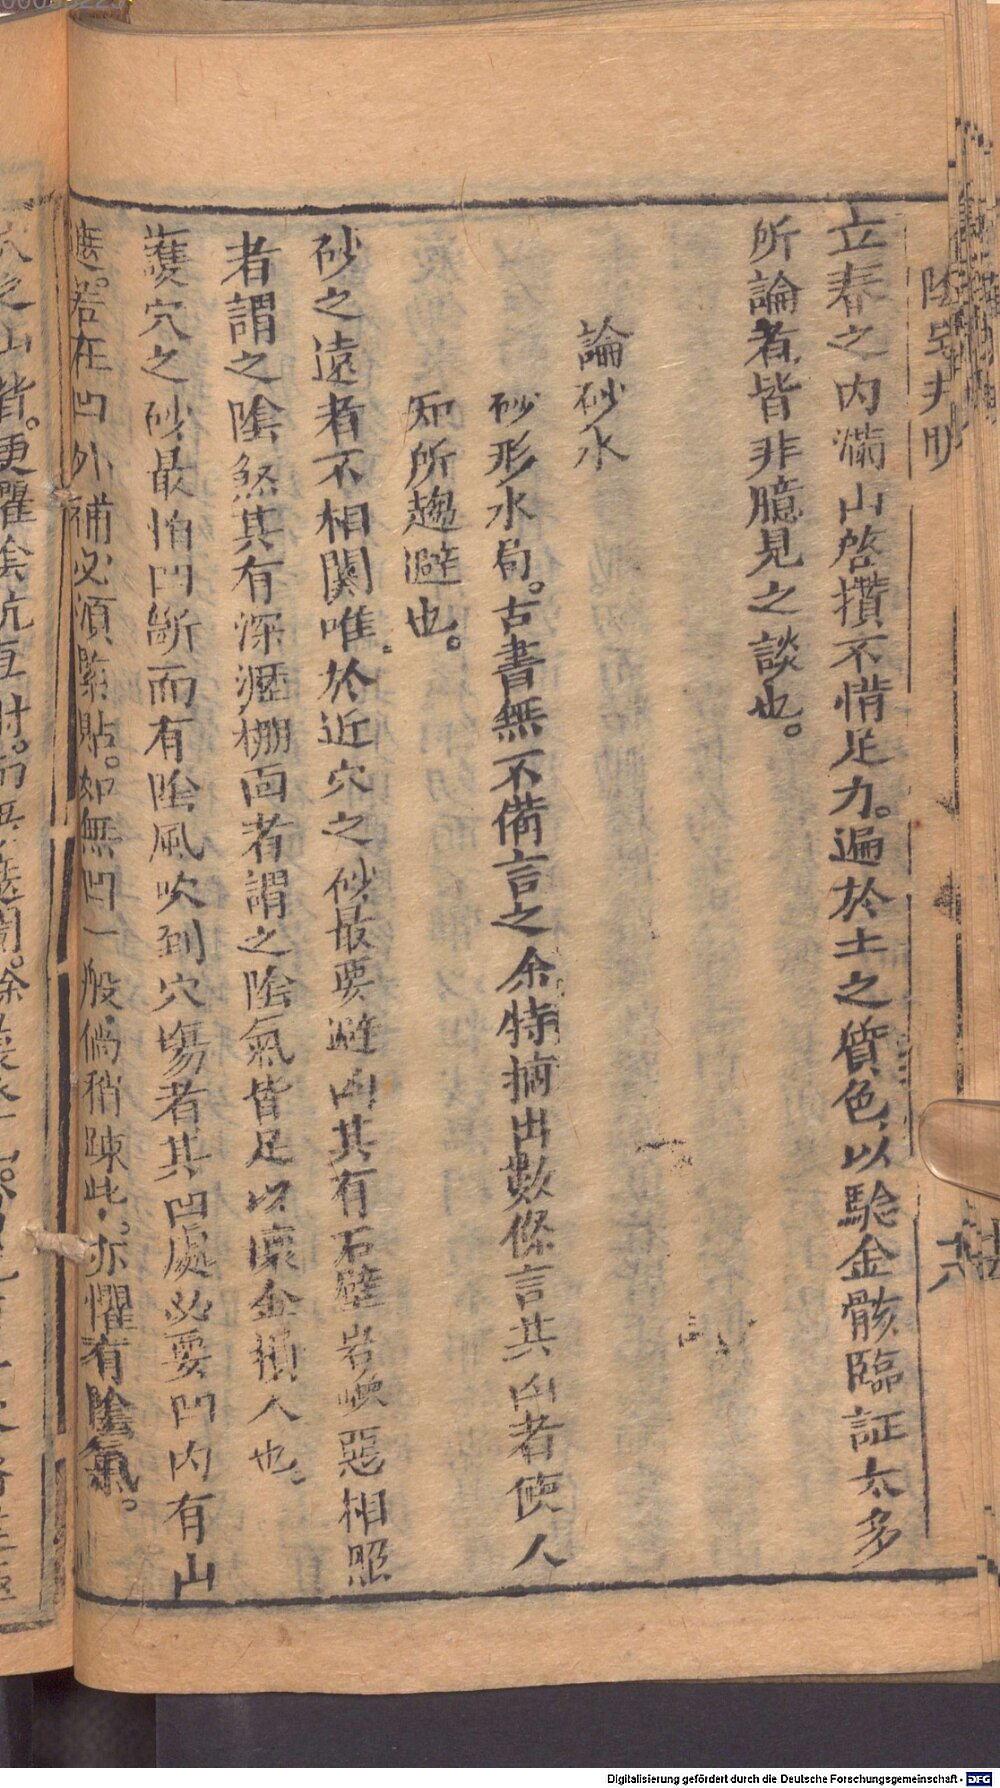 立春之内滿山啓攢不惜足力。遍於土之質色以驗金骸臨証太多
所論者皆非臆見之談也。
論砂水
砂形水局。古書無不備言之余特摘出數條言其凶者使人
知所趨避也。
砂之遠者不相關唯於近穴之砂最要避凶其有石壁岩巉惡相照
者謂之陰煞其有深瀝棚面者謂之陰氣皆足以壞金損人也。
護穴之砂最怕凹斷而有陰風吹到穴塲者其凹處必要凹内有山
遮。若在凹外補必須緊貼。如無凹一般倘稍踈此。亦懼有陰氣。
Digitalisierung gefördert durch die Deutsche Forschungsgemeinschaft - DFG